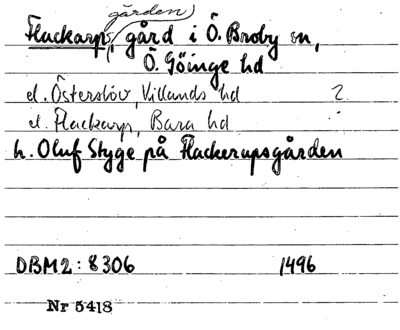 gården
Flackarp, gård i Ö. Broby sn,
Ö. Göinge hd
el. Österslöv, Villands hd ?
el. Flackarp, Bara hd
h. Oluf Styge på Flackerupsgården
DBM2: 8306 1496
Nr 5418